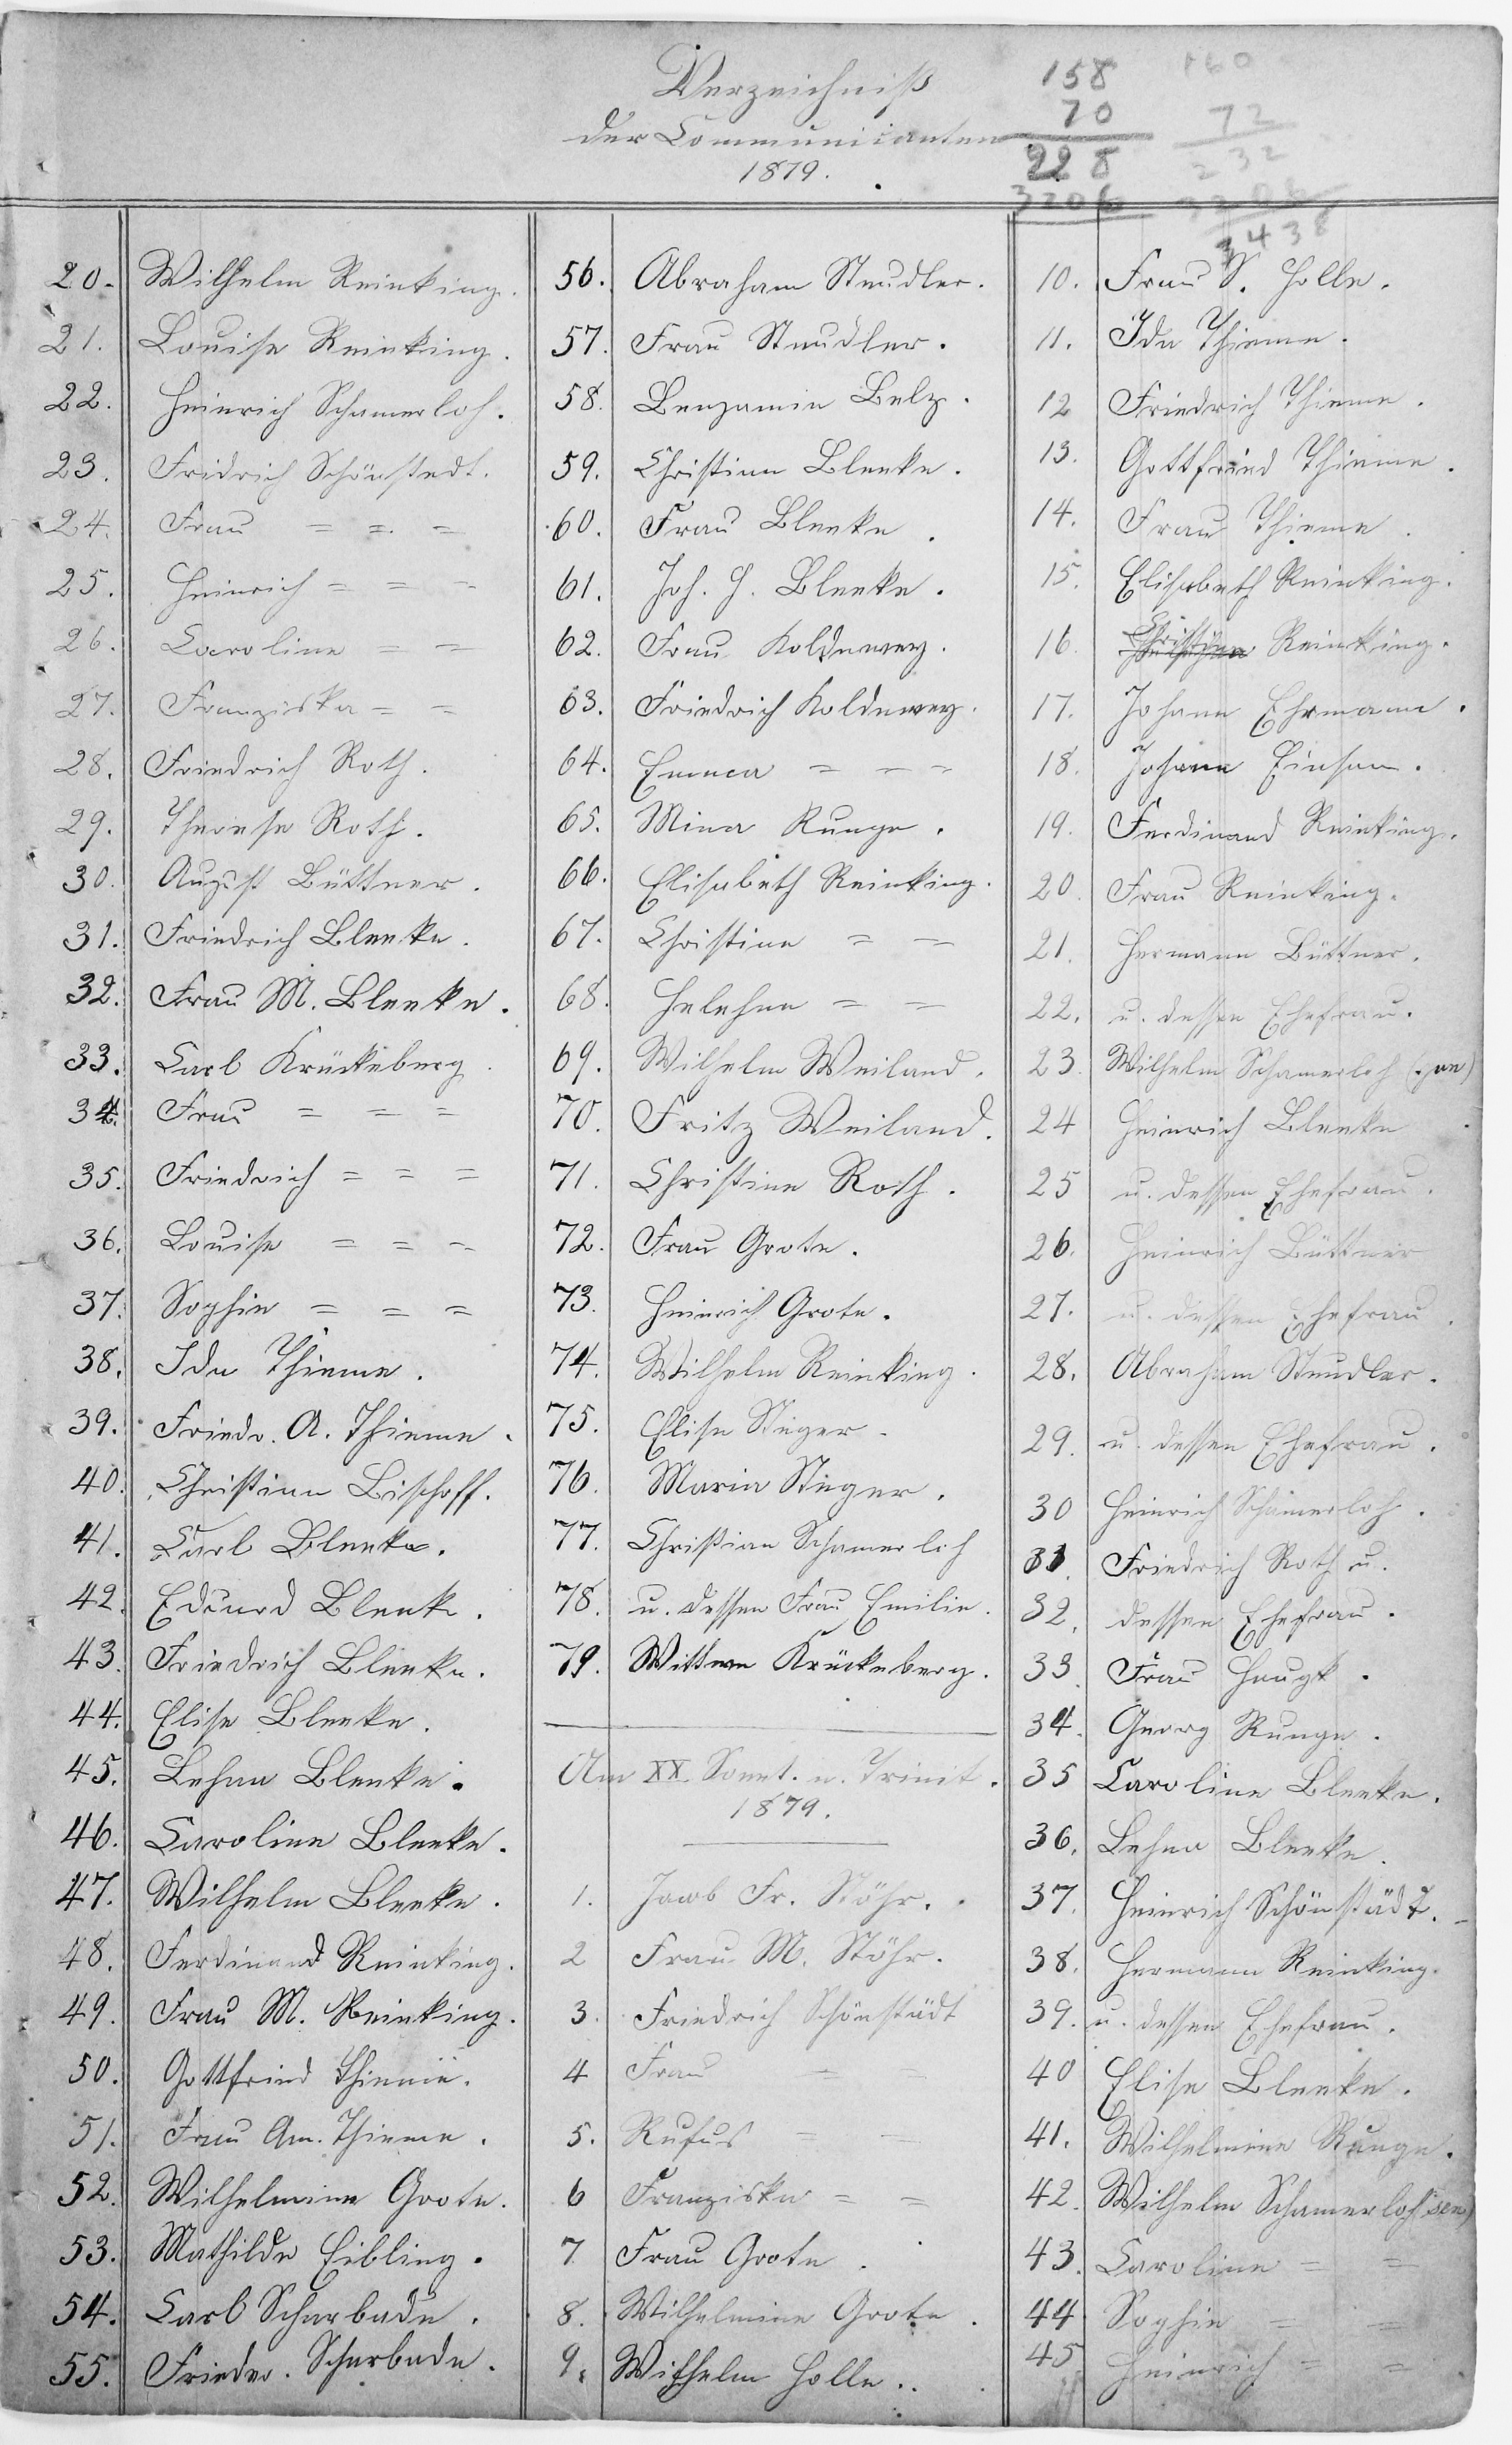 Verzeichniß
der Communicanten
1879.
158
70
228
3206
160
72
232
3206
3438
20. Wilhelm Reinking.
21. Louise Reinking.
22. Heinrich Schamerloh.
23. Fridrich Schönstedt.
24. Frau = = =
25. Heinrich = = =
26. Caroline = =
27. Franziska = =
28. Friedrich Roth.
29. Therese Roth.
30. August Büttner.
31. Friedrich Bleeke.
32. Frau M. Bleeke.
33. Carl Krückeberg.
34. Frau = = =
35. Friedrich = = =
36. Louise = = =
37. Sophie = = =
38. Ida Thieme.
39. Friedr. A. Thieme.
40. Christian Bischoff.
41. Carl Bleeke.
42. Eduard Bleeke.
43. Friedrich Bleeke.
44. Elise Bleeke.
45. Lehna Bleeke.
46. Caroline Bleeke.
47. Wilhelm Bleeke.
48. Ferdinand Reinking.
49. Frau M. Reinking.
50. Gottfried Thieme.
51. Frau Am. Thieme.
52. Wilhelmine Grote.
53. Mathilde Eibling.
54. Carl Scharbade.
55. Frieder. Scharbade.
56. Abraham Steudler.
57. Frau Steudler.
58. Benjamin Belz.
59. Christian Bleeke.
60. Frau Bleeke.
61. Joh. H. Bleeke.
62. Frau Koldewey.
63. Friedrich Koldewey.
64. Emma = = =
65. Mina Runge.
66. Elisabeth Reinking.
67. Christine = =
68. Helehne = =
69. Wilhelm Weiland.
70. Fritz Weiland.
71. Christine Roth.
72. Frau Grote.
73. Heinrich Grote.
74. Wilhelm Reinking.
75. Elise Steger.
76. Maria Steger.
77. Christian Schamerloh
78. u. dessen Frau Emilie.
79. Wittwe Krückeberg.
Am XX. Sonnt. n. Trinit.
1879.
1. Jacob Fr. Stöhr.
2 Frau M. Stöhr.
3. Friedrich Schönstädt
4 Frau = =
5. Rufus = =
6 Franziska = =
7. Frau Grote.
8. Wilhelmine Grote.
9. Wilhelm Holle.
10. Frau S. Holle.
11. Ida Thieme.
12 Friedrich Thieme.
13. Gottfried Thieme.
14. Frau Thieme.
15. Elisabeth Reinking.
16. Christine Reinking.
17. Johann Ehrmann.
18. Johann Einsam.
19. Ferdinand Reinking.
20. Frau Reinking.
21. Hermann Büttner.
22. u. dessen Ehefrau.
23. Wilhelm Schamerloh (jun)
24 Heinrich Bleeke
25 u. dessen Ehefrau.
26. Heinrich Büttner
27. u. dessen Ehefrau.
28. Abraham Steudler.
29. u. dessen Ehefrau.
30 Heinrich Schamerloh.
31. Friedrich Roth u.
32. dessen Ehefrau.
33. Frau Haugk.
34. Georg Runge.
35 Caroline Bleeke.
36. Lehna Bleeke.
37. Heinrich Schönstädt.
38. Hermann Reinking.
39. u. dessen Ehefrau.
40 Elise Bleeke.
41. Wilhelmine Runge.
42. Wilhelm Schamerloh sen)
43. Caroline = =
44 Sophie = =
45 Heinrich = =